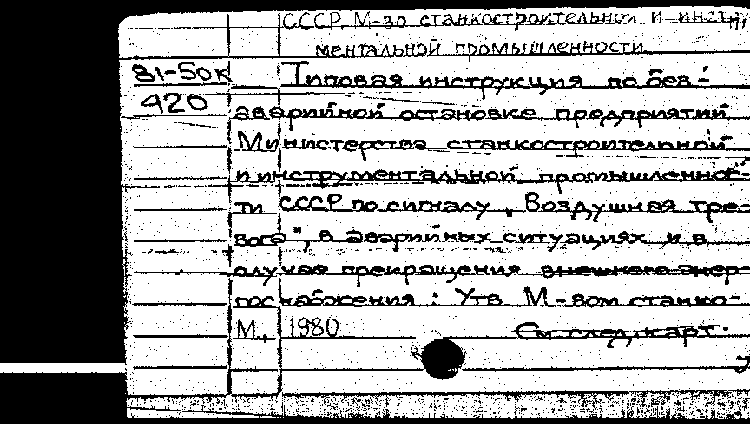 СССР. М-во станкостроительной и инстру-
ментальной промышленности.
81-50к
420
Типовая инструкция по без-
аварийной остановке предприятий
Министерства станкостроительной
и инструментальной промышленнос-
ти СССР по сигналу „Воздушная тре-
вога", в аварийных ситуациях и в
случае прекращения внешнего энер-
госнабжения : Утв. М-вом станко-
М., 1980
См. след. карт.